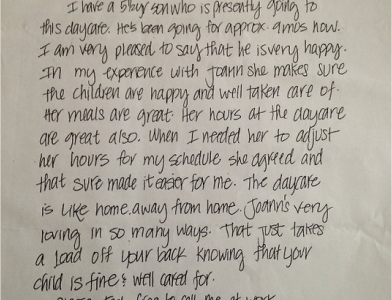 I have a 5½yr son who is presently going to
this daycare. He's been going for approx. 9mos now.
I am very pleased to say that he is very happy.
In my experience with Joann she makes sure
the children are happy and well taken care of.
Her meals are great. Her hours at the daycare
are great also. When I needed her to adjust
her hours for my schedule she agreed and
that sure made it easier for me. The daycare
is like home away from home. Joann's very
loving in so many ways. That just takes
a load off your back knowing that your
child is fine & well cared for.
feel free to call me at work